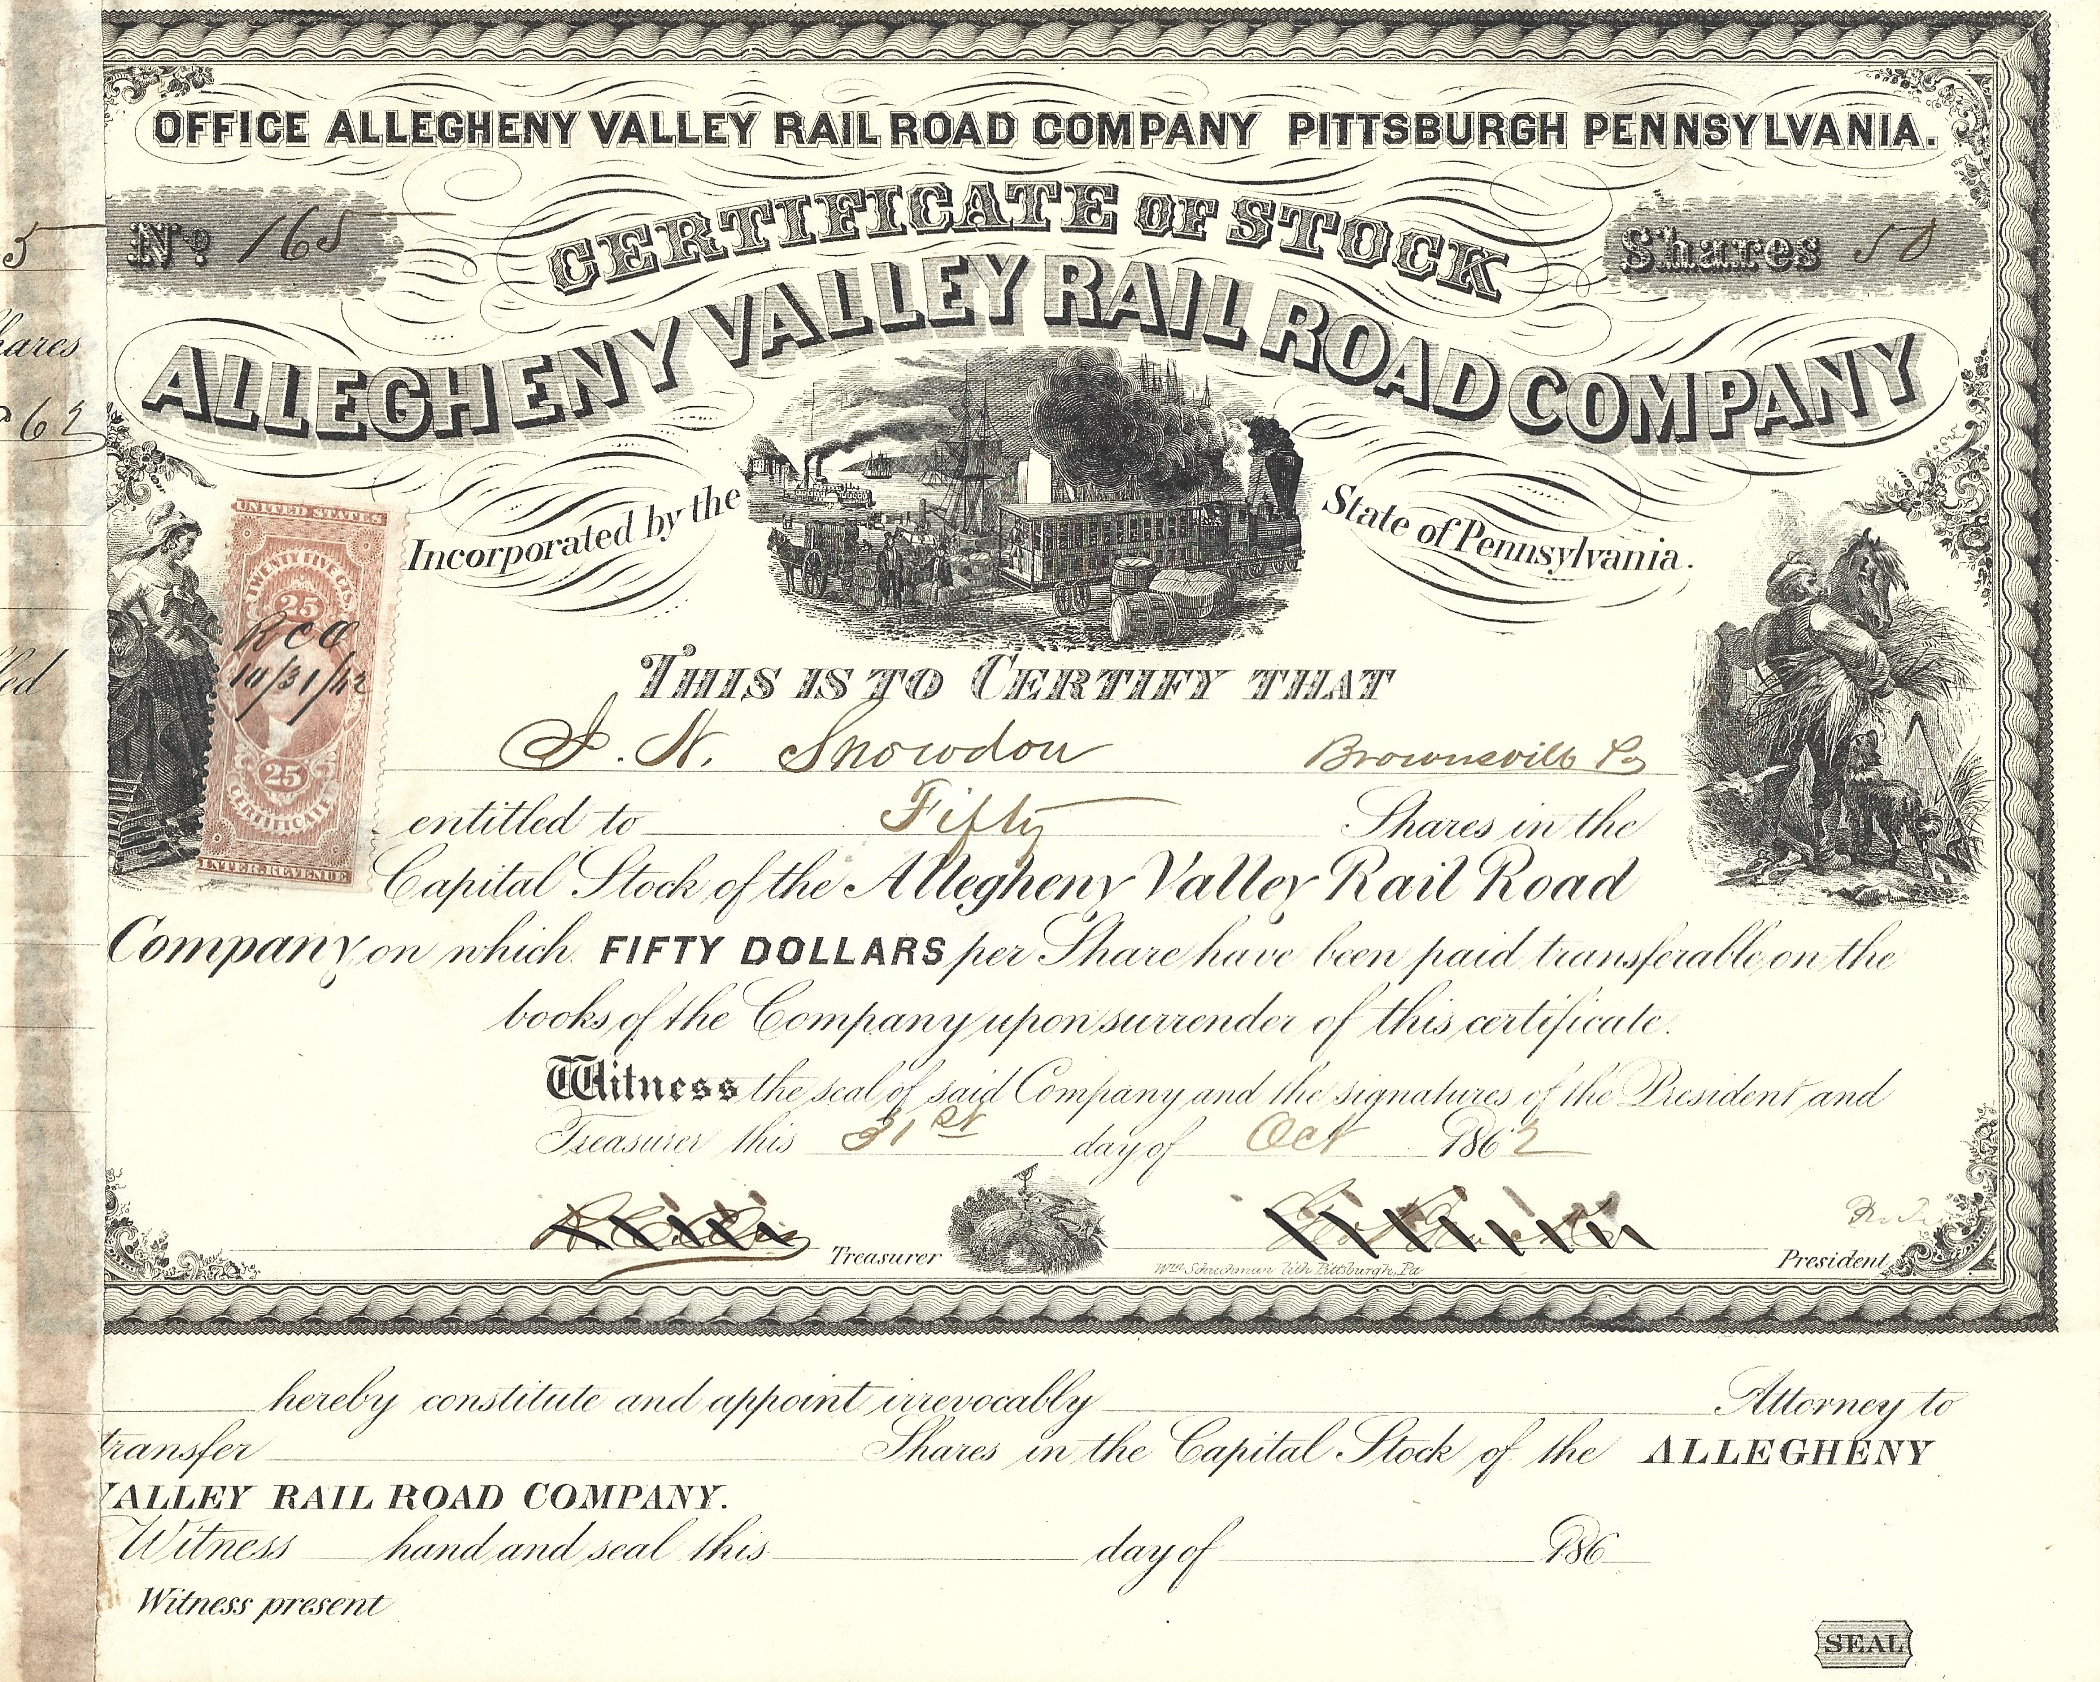 OFFICE ALLEGHENY VALLEY RAIL ROAD COMPANY PITTSBURGH PENNSYLVANIA.
No. 165
CERTIFICATE OF STOCK
Shares 50
5
hares
62
ALLEGHENY VALLEY RAIL ROAD COMPANY
Incorporated by the State of Pennsylvania.
UNITED STATES
TWENTY FIVE CTS.
25
RCO
10/31/62
25
CERTIFICATE
INTER. REVENUE
led
THIS IS TO CERTIFY THAT
J. N. Snowdon Brownsville Pa
entitled to Fifty Shares in the
Capital Stock of the Allegheny Valley Rail Road
Company on which FIFTY DOLLARS per Share have been paid transferable on the
books of the Company upon surrender of this certificate.
Witness the seal of said Company and the signatures of the President and
Treasurer this 31st day of Oct 1862
Treasurer
President
hereby constitute and appoint irrevocably Attorney to
transfer Shares in the Capital Stock of the ALLEGHENY
VALLEY RAIL ROAD COMPANY.
Witness hand and seal this day of 186
Witness present
SEAL